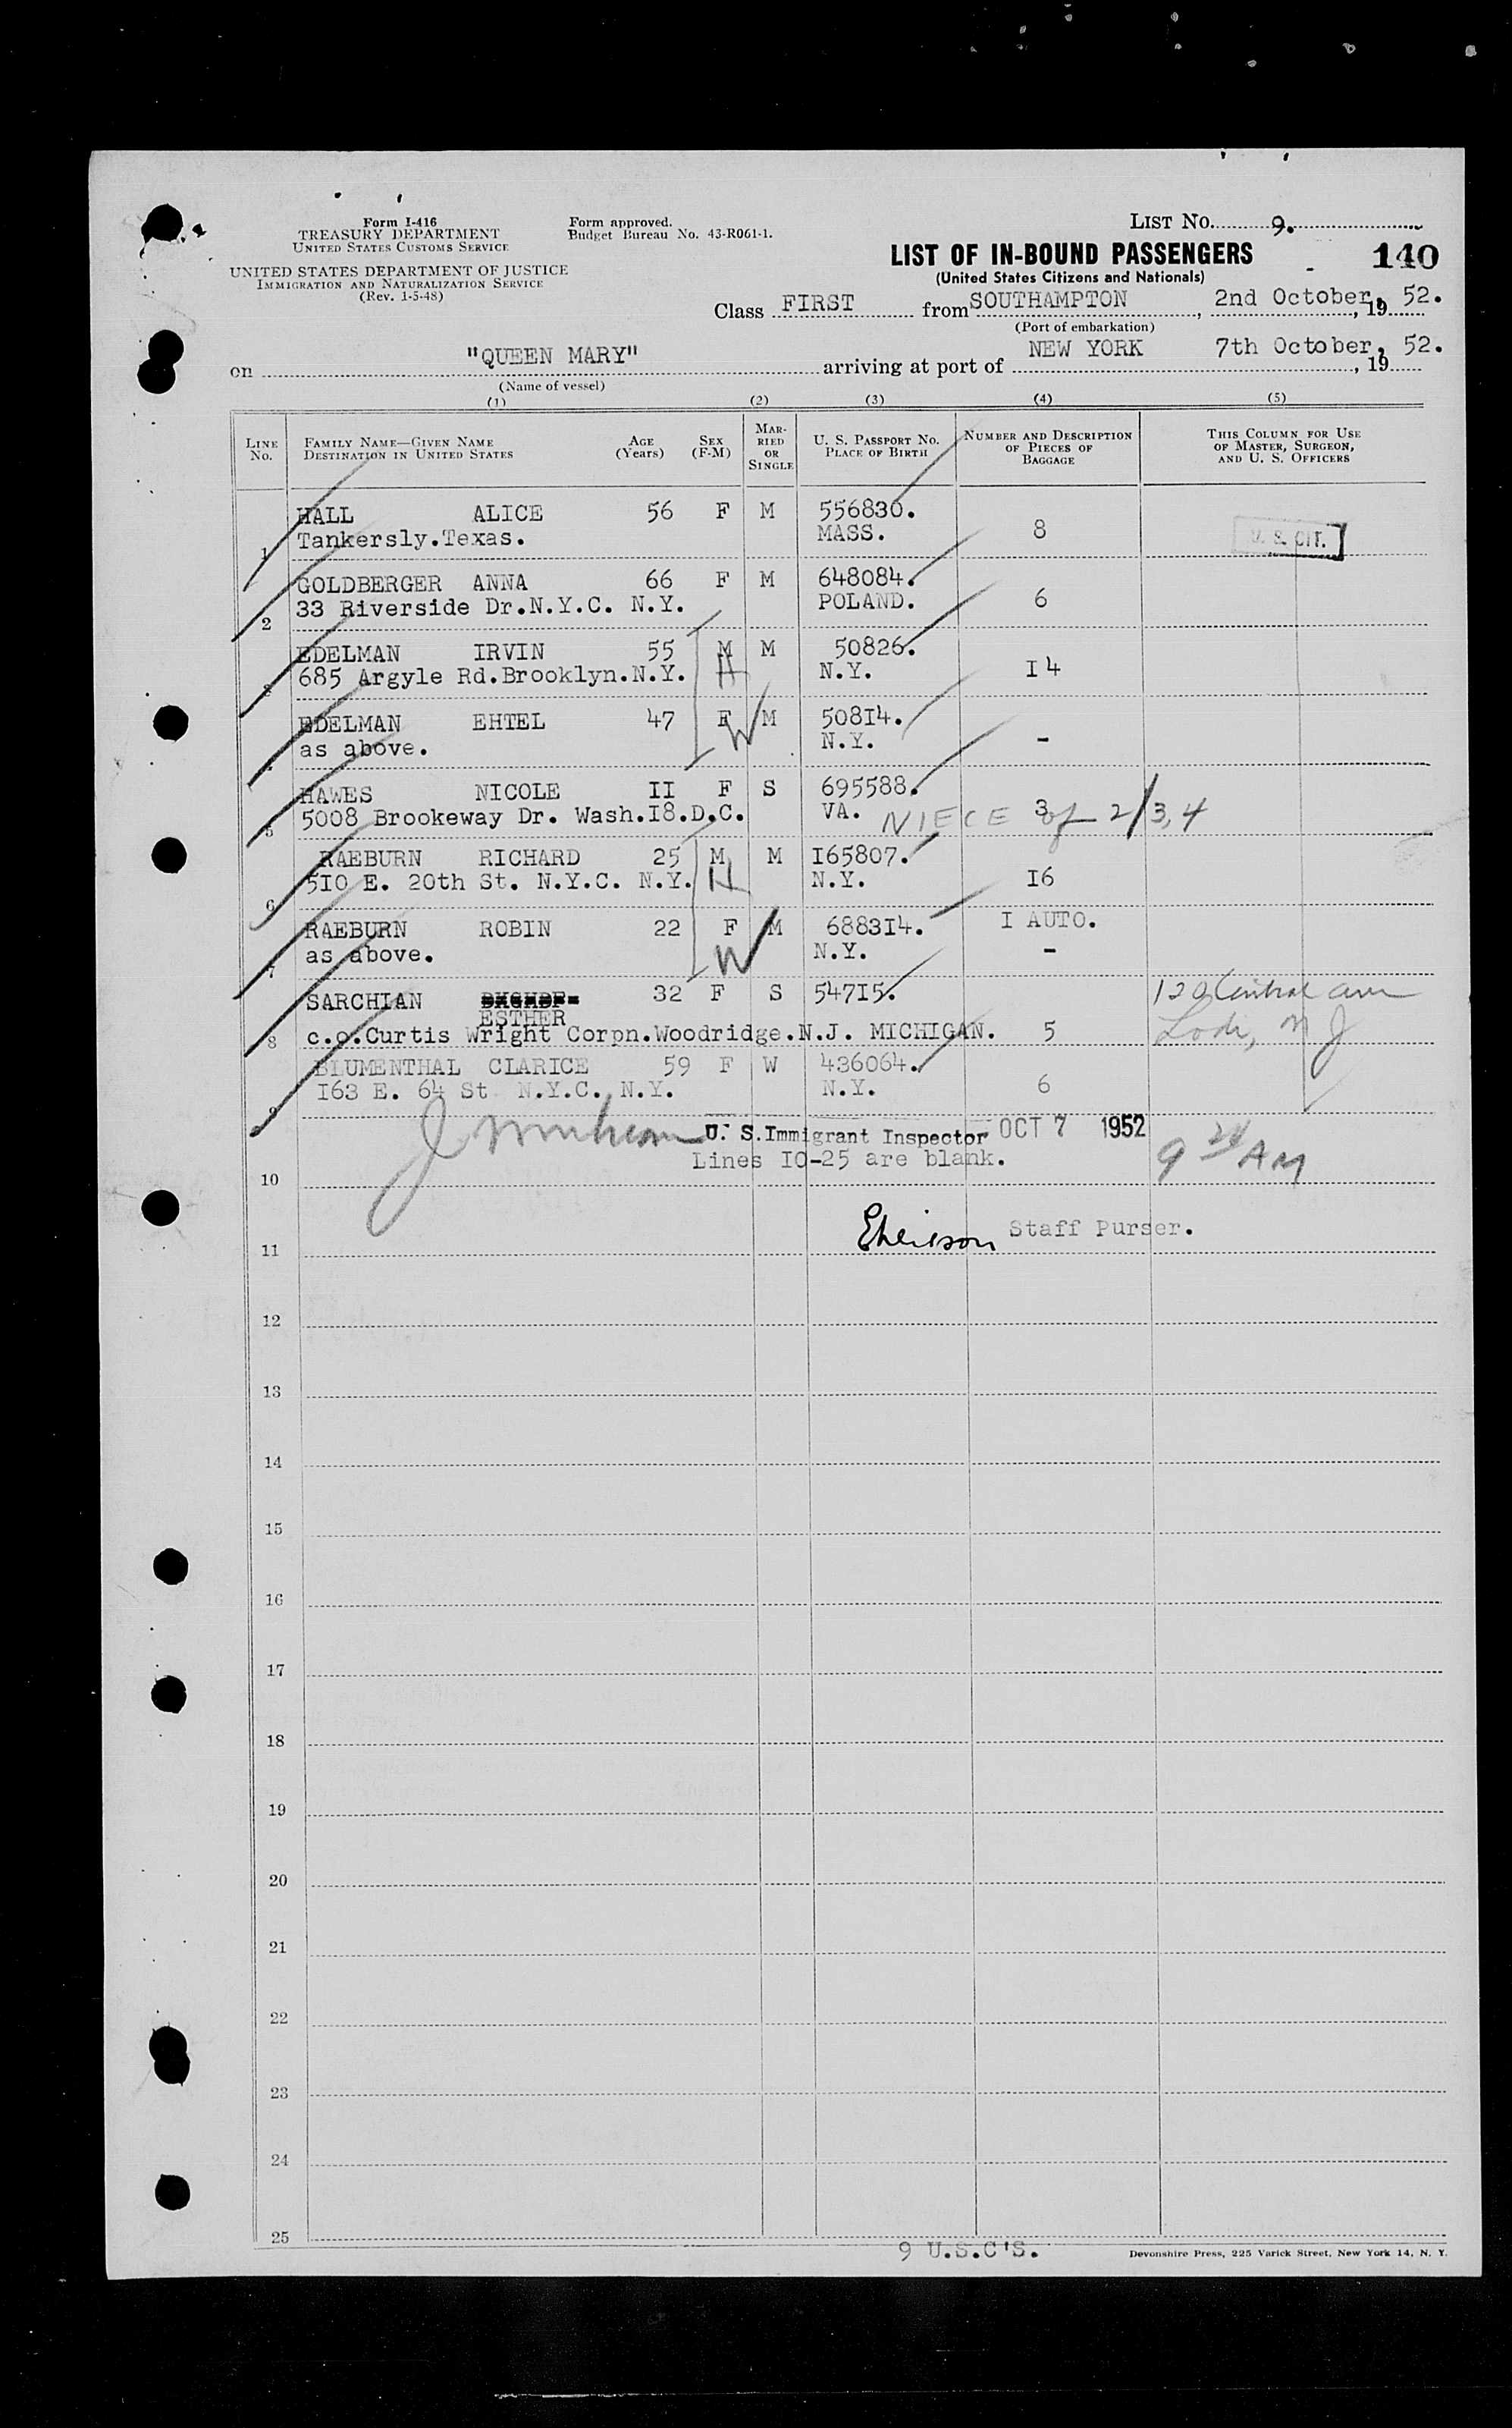 Form I-416
TREASURY DEPARTMENT
UNITED STATES CUSTOMS SERVICE
UNITED STATES DEPARTMENT OF JUSTICE
IMMIGRATION AND NATURALIZATION SERVICE
(Rev. 1-5-48)
Form approved.
Budget Bureau No. 43-R061-1.
LIST No. 9.
LIST OF IN-BOUND PASSENGERS
(United States Citizens and Nationals)
140
Class FIRST from SOUTHAMPTON, 2nd October, 19 52.
(Port of embarkation)
on "QUEEN MARY" arriving at port of NEW YORK 7th October, 19 52.
(Name of vessel)
(1) (2) (3) (4) (5)
LINE No. FAMILY NAME—GIVEN NAME DESTINATION IN UNITED STATES AGE (Years) SEX (F-M) MARRIED OR SINGLE U. S. PASSPORT No. PLACE OF BIRTH NUMBER AND DESCRIPTION OF PIECES OF BAGGAGE THIS COLUMN FOR USE OF MASTER, SURGEON, AND U. S. OFFICERS
HALL ALICE 56 F M 556830.
1 Tankersly.Texas. MASS. 8 U. S. CIT.
GOLDBERGER ANNA 66 F M 648084.
2 33 Riverside Dr.N.Y.C. N.Y. POLAND. 6
EDELMAN IRVIN 55 M M 50826.
3 685 Argyle Rd.Brooklyn.N.Y. H N.Y. I4
EDELMAN EHTEL 47 F M 508I4.
4 as above. W N.Y. -
HAWES NICOLE II F S 695588.
5 5008 Brookeway Dr. Wash.I8.D.C. VA. 3 NIECE of 2/3,4
RAEBURN RICHARD 25 M M I65807.
6 5I0 E. 20th St. N.Y.C. N.Y. H N.Y. I6
RAEBURN ROBIN 22 F M 6883I4. I AUTO.
7 as above. W N.Y. -
SARCHIAN 32 F S 547I5. 120 Central ave
ESTHER
8 c.o.Curtis Wright Corpn.Woodridge.N.J. MICHIGAN. 5 Lodi, N J
BLUMENTHAL CLARICE 59 F W 436064.
9 I63 E. 64 St N.Y.C. N.Y. N.Y. 6
U. S. Immigrant Inspector OCT 7 1952
Lines I0-25 are blank. 9 24 AM
10
Staff Purser.
11
12
13
14
15
16
17
18
19
20
21
22
23
24
25
9 U.S.C'S.
Devonshire Press, 225 Varick Street, New York 14, N. Y.